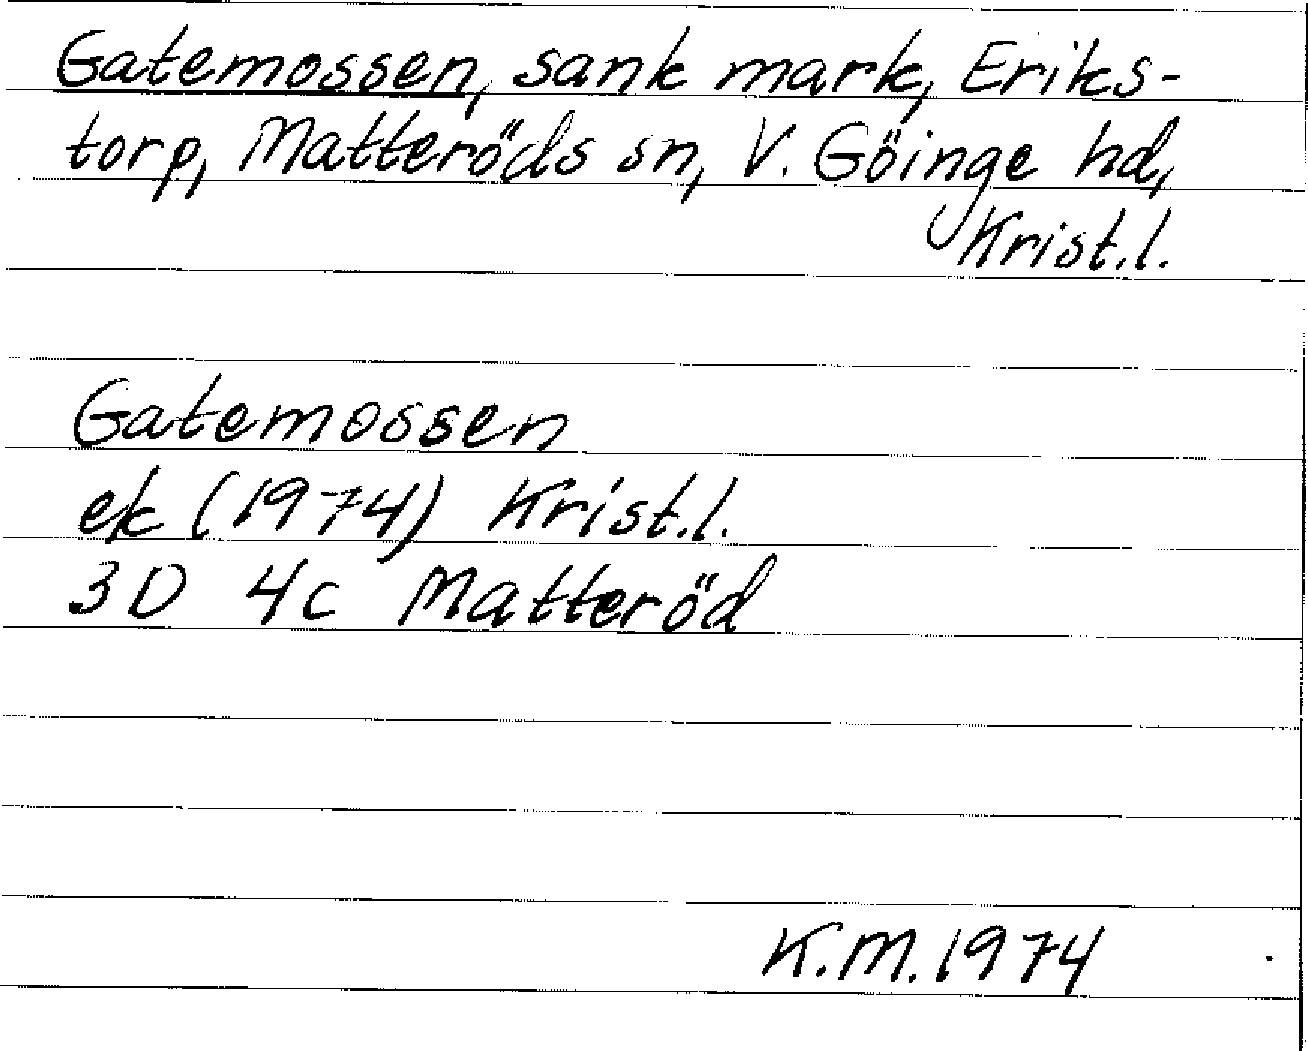 Gatemossen, sank mark, Eriks-
torp, Matteröds sn, V. Göinge hd,
Krist.l.
Gatemossen
ek (1974) Krist.l.
3D 4c Matteröd
K.M. 1974